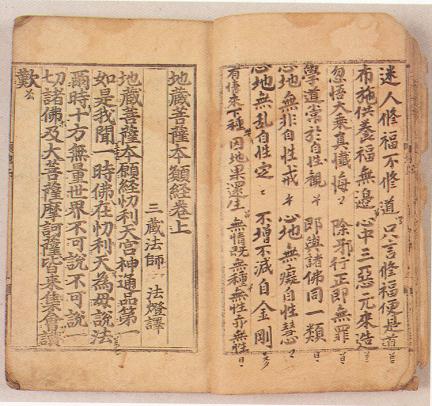 迷人修福不修道 只言修福便是道
布施供養福無邊 心中三惡元來造
忽悟大乗真懺悔 除邪行正即無罪
學道常於自性觀 即與諸佛同一類
心地無非自性戒 心地無癡自性慧
心地無乱自性定 不增不減自金剛
有情來下種 因地果還生 無情旣無種 無性亦無性
地藏菩薩本願經卷上
三藏法師 法燈譯
地藏菩薩本願經忉利天宮神通品第一
如是我聞一時佛在忉利天爲母說法
爾時十方無量世界不可說不可說一
切諸佛及大菩薩摩訶薩皆来集會讚
歎